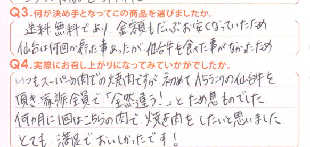 Q3.何が決め手となってこの商品を選びましたか。
送料無料であり 金額もだいぶお安くなっていたため
仙台は何回か寄た事あったが、仙台牛を食べた事がなかったため
Q4.実際にお召し上がりになってみていかがでしたか。
いつもスーパーの肉での焼肉ですが初めてA5ランクの仙台牛を
頂き、家族全員で「全然違う!」とため息ものでした。
何ヵ月に1回はこちらの肉で焼き肉をしたいと思いました
とても満足でおいしかったです!